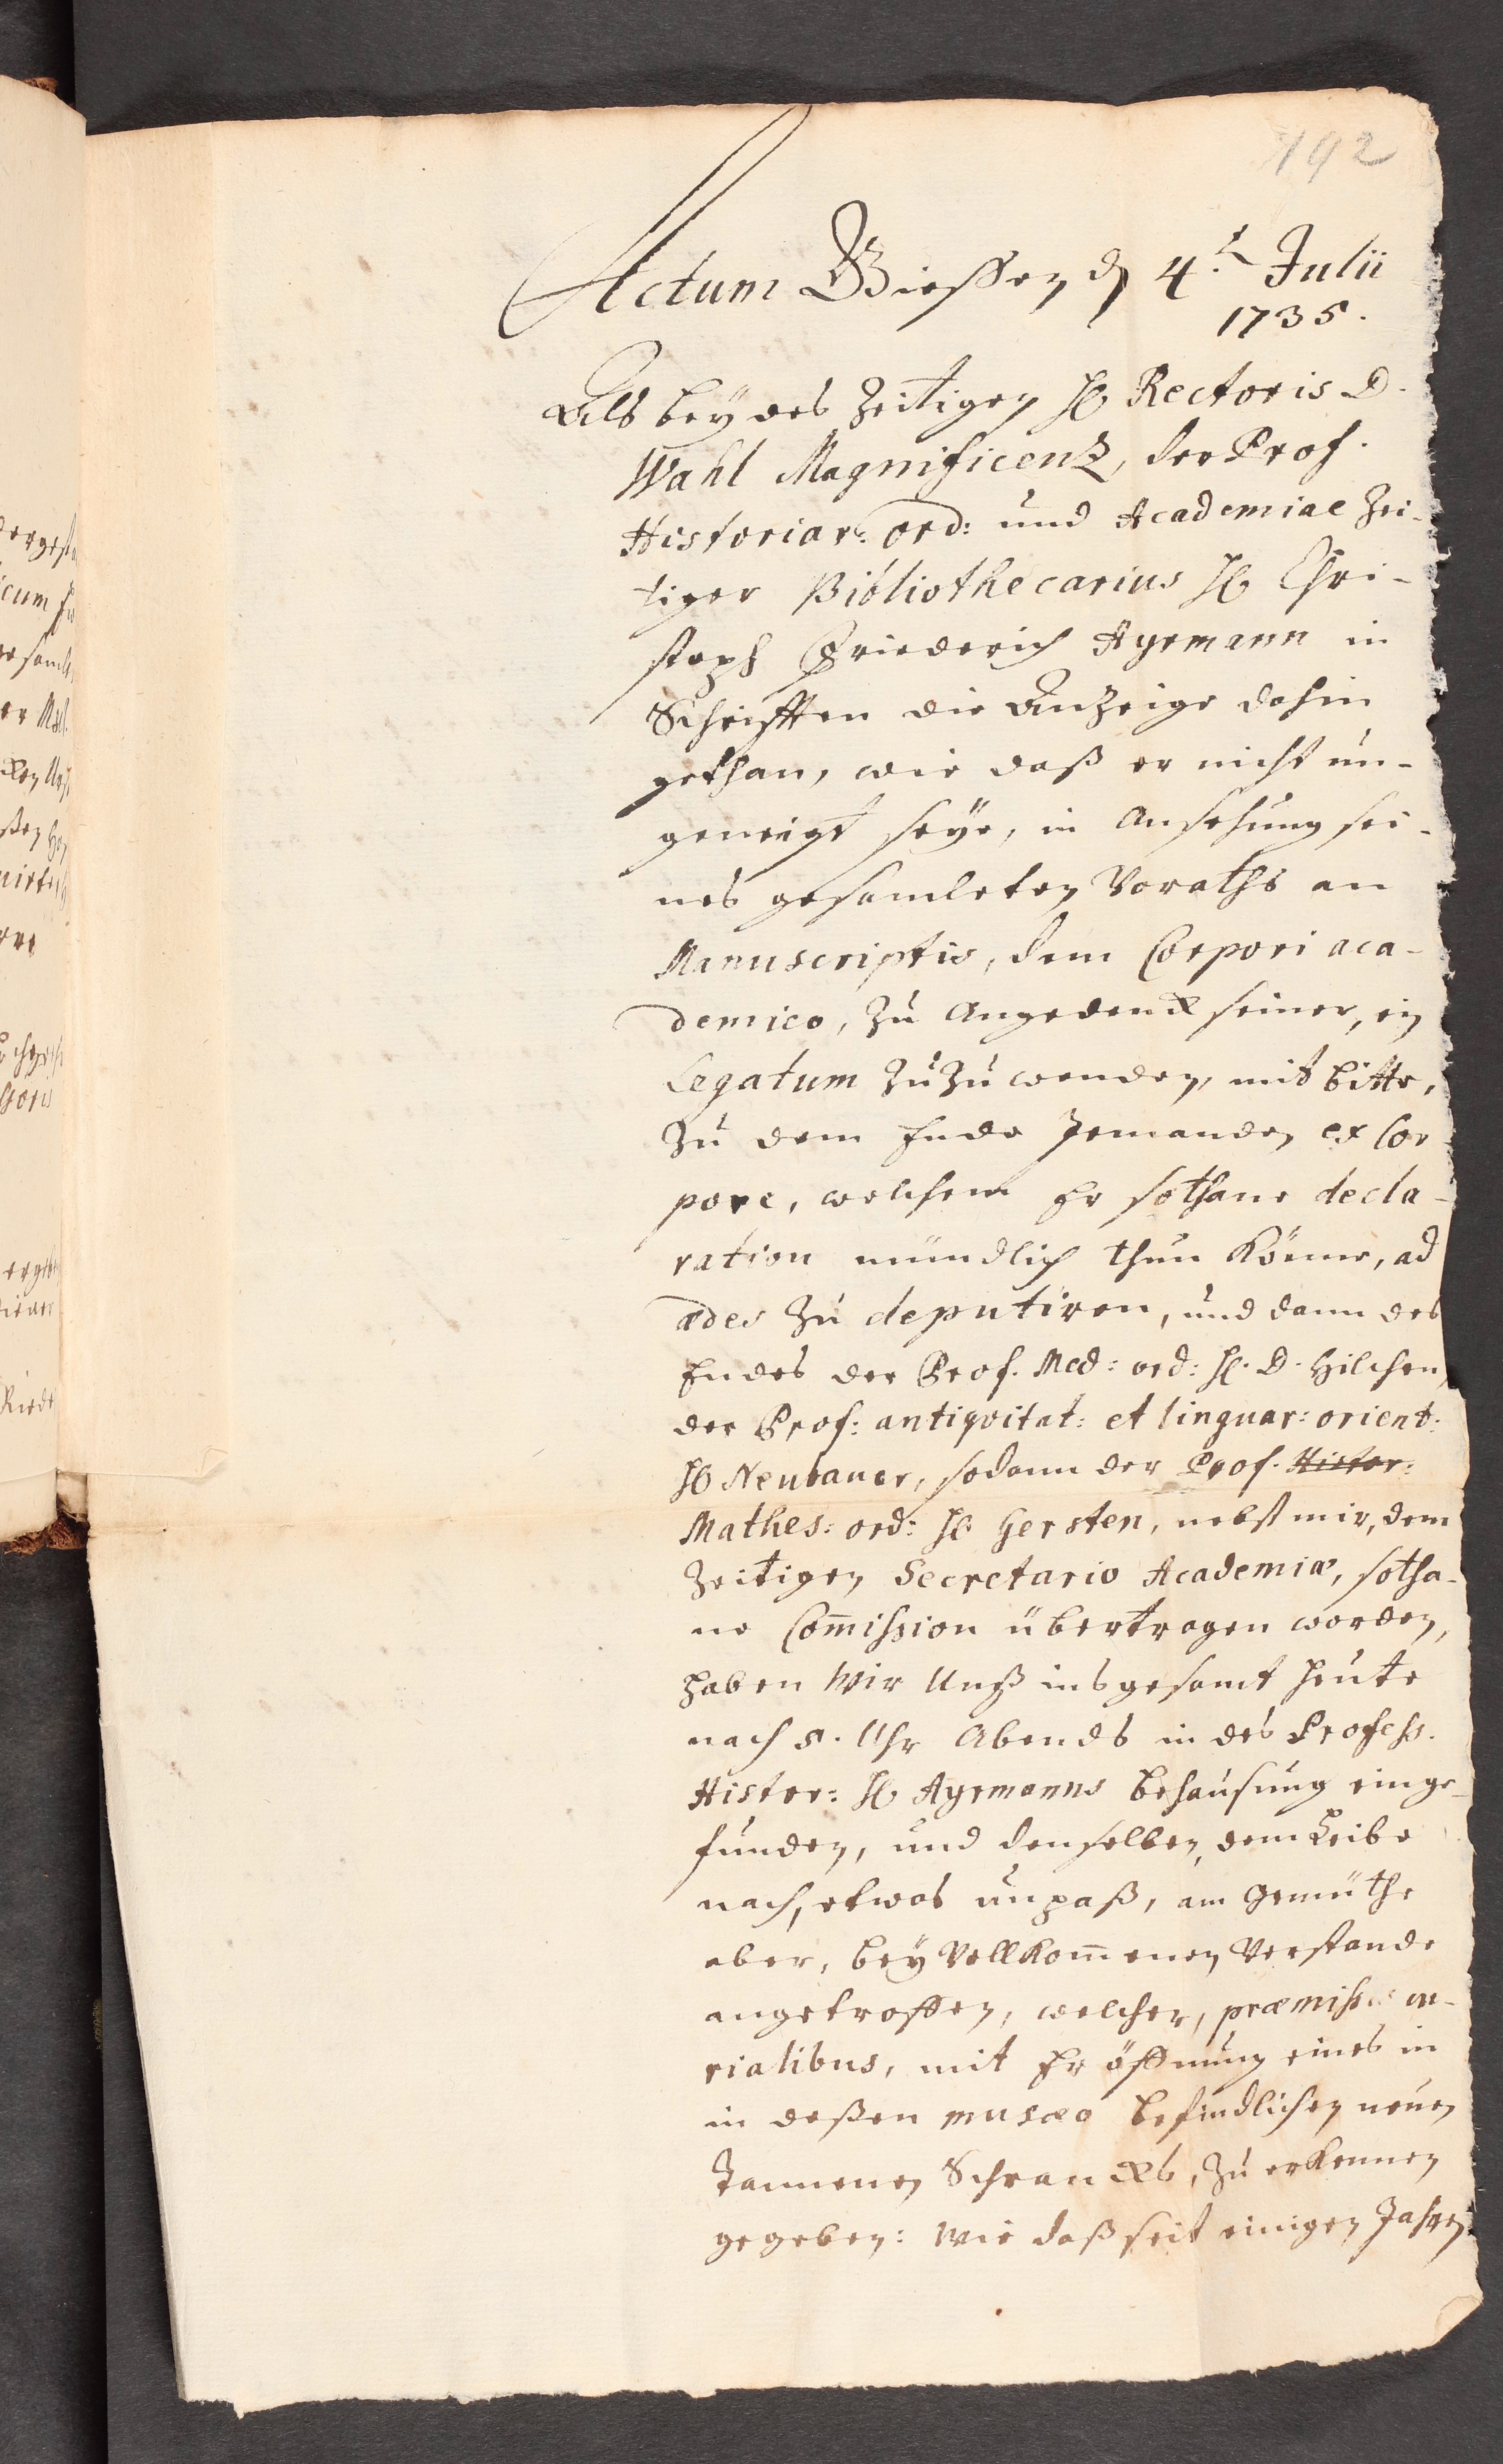 192
Actum Giessen d 4.t Julii
1735.
Als bey des zeitigen H. Rectoris D.
Wahl Magnificenz, der Prof.
Historiar: ord: und Academiae zei-
tiger Bibliothecarius H. Chri-
stoph Friederich Ayrmann in
Schrifften die Anzeige dahin
gethan, wie daß er nicht un-
geneigt seye, in Ansehung sei-
nes gesamleten Voraths an
Manuscriptis, dem Corpori aca-
demico, zu Angedenck seiner, ein
Legatum zuzuwenden, mit bitte,
zu dem Ende Jemanden ex Cor-
pore, welchem Er sothane decla-
ration mündlich thun könne, ad
ædes zu deputiren, und dann des
Endes der Prof. Med: ord: H. D. Hilchen,
der Prof: antiqvitat: et linguar: orient:
H. Neubauer, sodann der Prof. Histor:
Mathes: ord: H. Gersten, nebst mir, dem
zeitigen Secretario Academiæ, sotha-
ne Com̄ission übertragen worden,
haben Wir Unß insgesamt heute
nach 5. Uhr Abends in des Profess.
Histor: H. Ayrmanns behausung einge-
funden, und denselben, dem Leibe
nach, etwas unpaß, am Gemüthe
aber, bey Vollkom̄enen Verstande
angetroffen, welcher, præmissis cu-
rialibus, mit Er öffnung eines in
in deßen musæo befindlichen neuen
Tannenen Schrancks, zu erkennen
gegeben: Wie daß seit einigen Jahren
icum